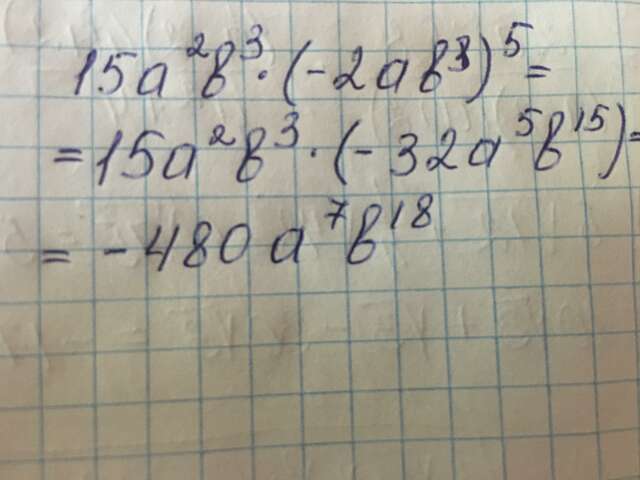 15a²b³·(-2ab³)⁵=
=15a²b³·(-32a⁵b¹⁵)=
=-480a⁷b¹⁸